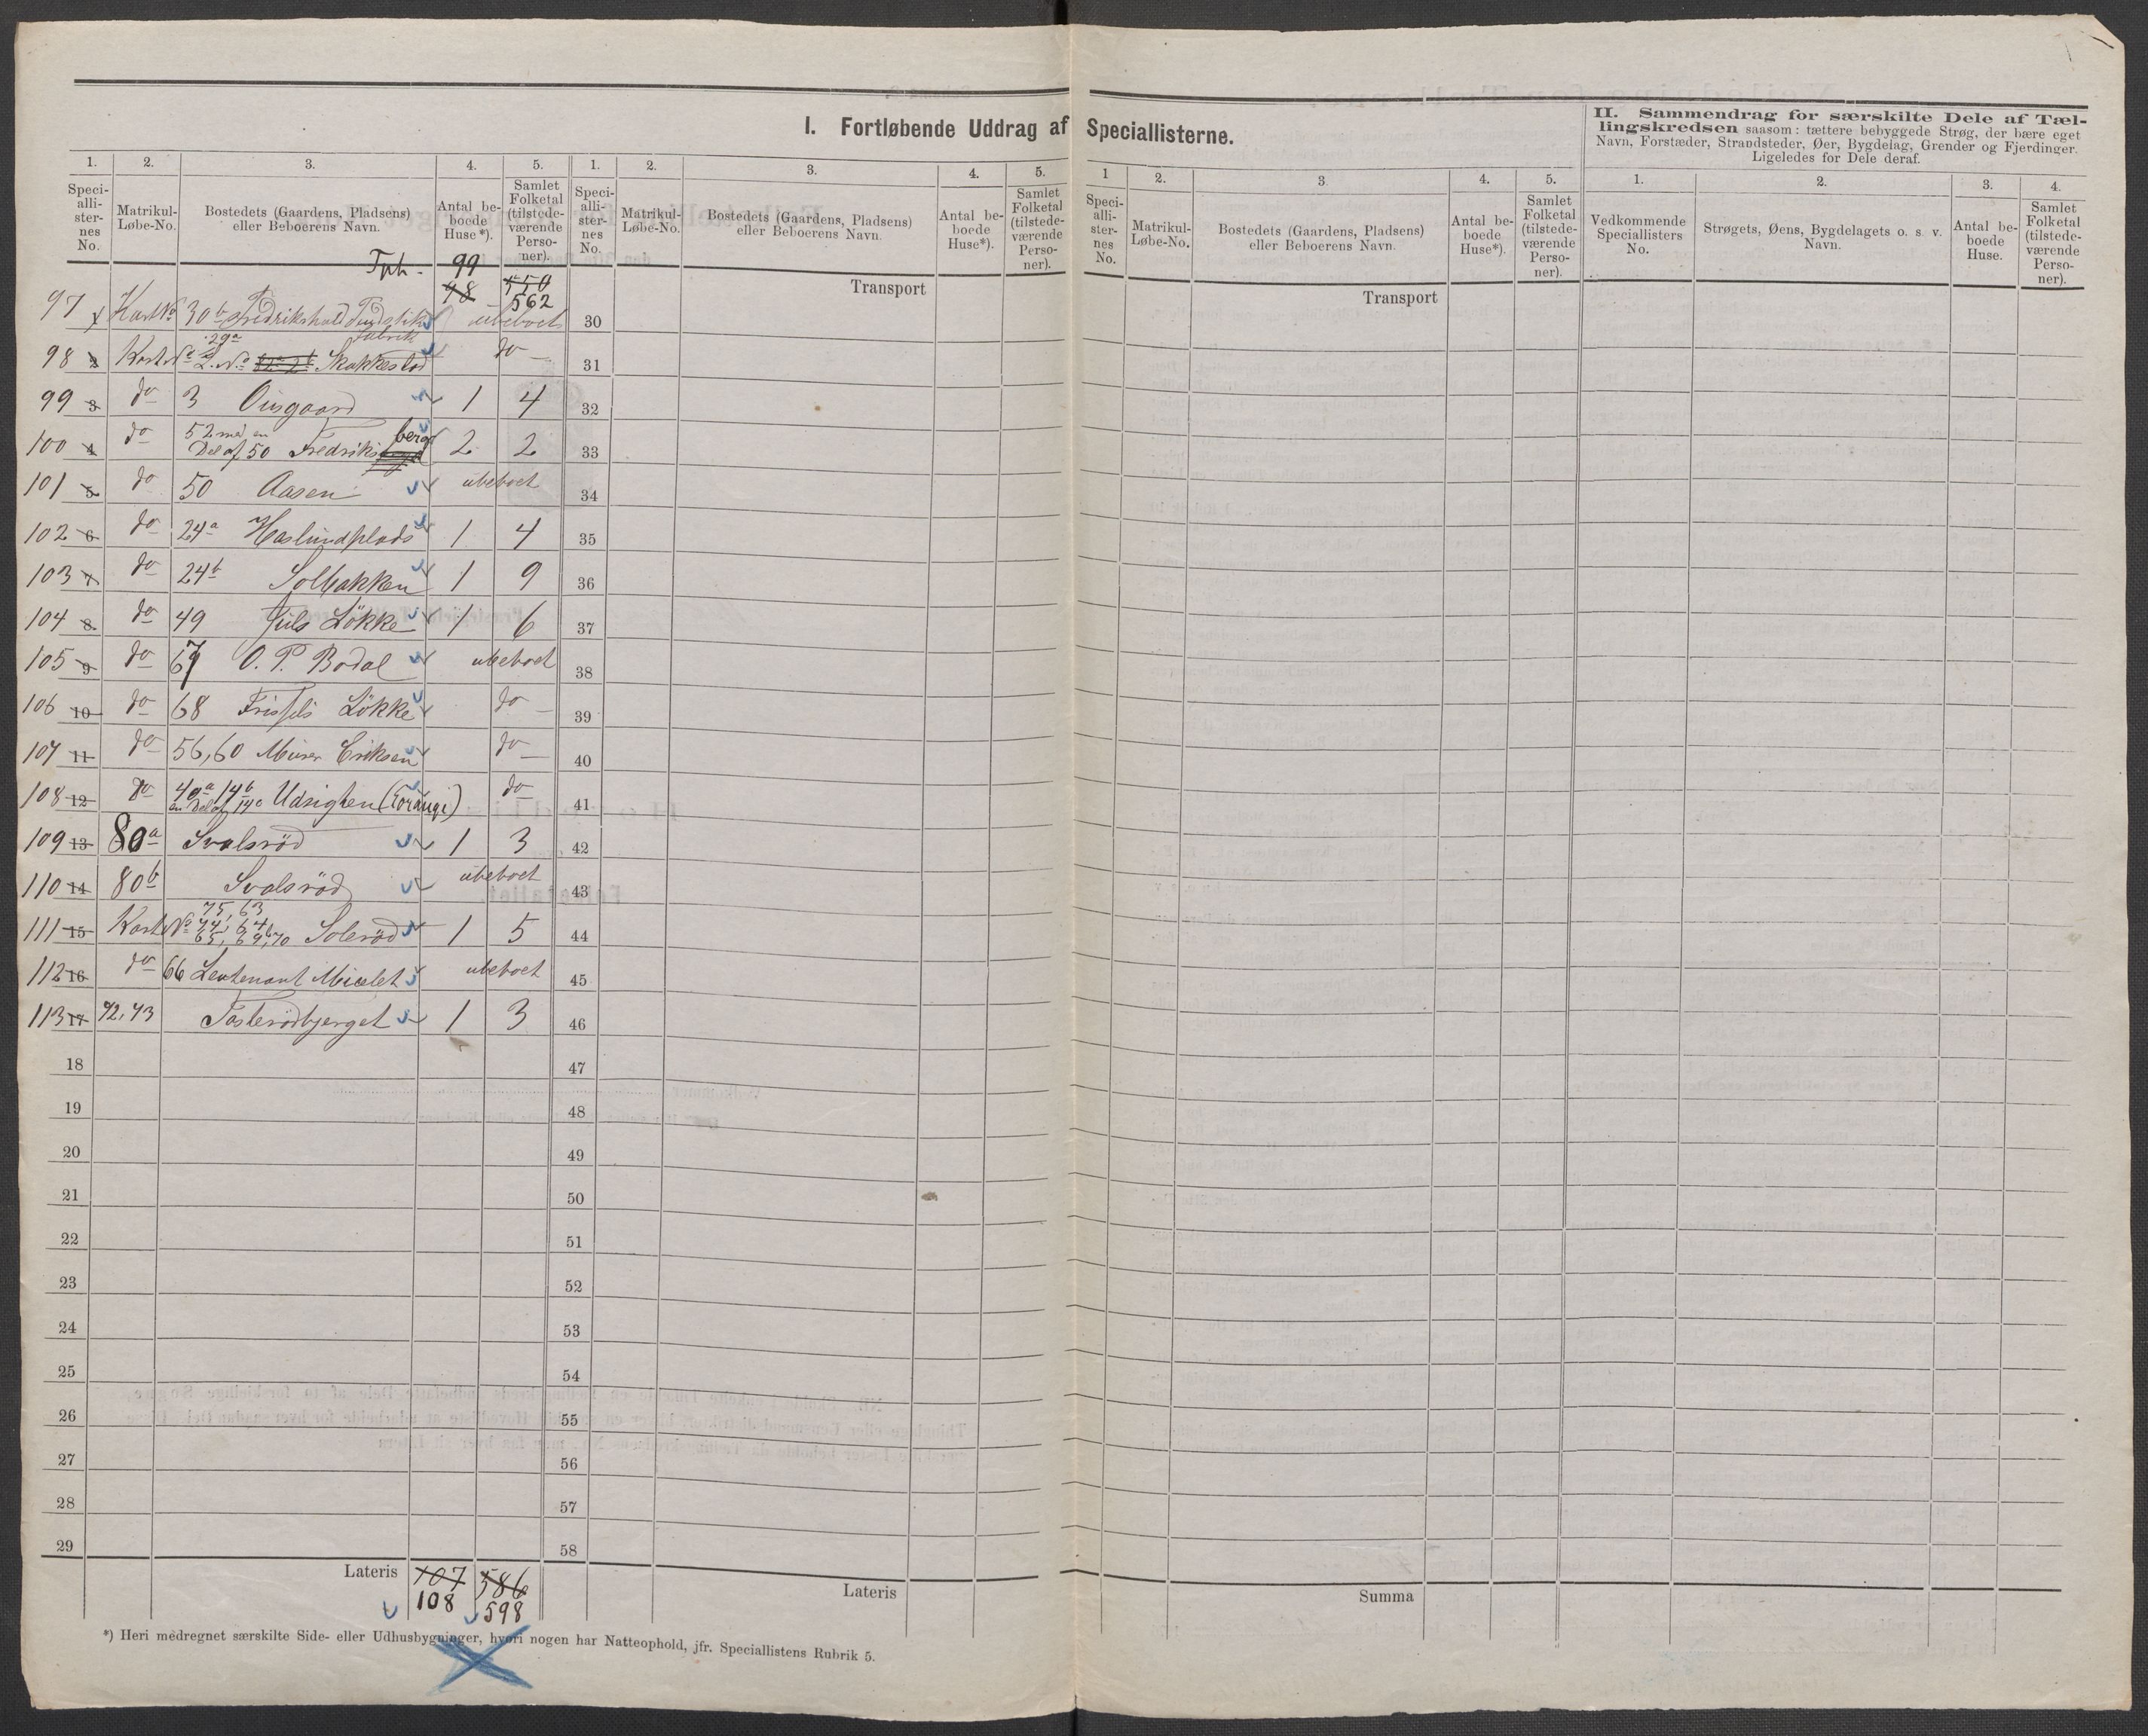 I. Fortløbende Uddrag af Speciallisterne.
II. Sammendrag for særskilte Dele af Tæl-
lingskredsen saasom: tættere bebyggede Strøg, der bære eget
Navn, Forstæder, Strandsteder, Øer, Bygdelag, Grender og Fjerdinger.
Ligeledes for Dele deraf.
1. 2. 3. 4. 5. 1. 2. 3. 4. 5. 1 2. 3. 4. 5. 1. 2. 3. 4.
Speci-
alli-
ster-
nes
No.
Matrikul-
Løbe-No.
Bostedets (Gaardens, Pladsens)
eller Beboerens Navn.
Antal be-
boede
Huse*).
Samlet
Folketal
(tilstede-
værende
Perso-
ner).
Speci-
alli-
ster-
nes
No.
Matrikul-
Løbe-No.
Bostedets (Gaardens, Pladsens)
eller Beboerens Navn.
Antal be-
boede
Huse*).
Samlet
Folketal
(tilstede-
værende
Perso-
ner).
Speci-
alli-
ster-
nes
No.
Matrikul-
Løbe-No.
Bostedets (Gaardens, Pladsens)
eller Beboerens Navn.
Antal be-
boede
Huse*).
Samlet
Folketal
(tilstede-
værende
Perso-
ner).
Vedkommende
Speciallisters
No.
Strøgets, Øens, Bygdelagets o. s. v.
Navn.
Antal be-
boede
Huse.
Samlet
Folketal
(tilstede-
værende
Perso-
ner).
Tph. 99
98 550
562
Transport
Transport
97 Kart No 30b Fredrikshald Tændstik ubeboet 30
fabrik
29a
98 Kart No L. No Skakkestad do 31
99 3 do 3 Ousgaard 1 4 32
100 4 do 52 med en Del af 50 Fredriksberg 2 2 33
101 5 do 50 Aasen ubeboet 34
102 6 do 24a Haslundplads 1 4 35
103 7 do 24b Solbakken 1 9 36
104 8 do 49 Juls Løkke 1 6 37
105 9 do O. P. Bodal ubeboet 38
106 10 do 68 Løkke do 39
107 11 do 56,60 Murer Eriksen do 40
108 12 do 40a 14b en Del af 14a Udsigten do 41
109 13 80a Svalsrød 1 3 42
110 14 80b Svalsrød ubeboet 43
75, 63
111 15 Kart No Solerød 1 5 44
112 16 do 66 Leutenant Micelet ubeboet 45
113 17 72,73 Tosterødbjerget 1 3 46
18 47
19 48
20 49
21 50
22 51
23 52
24 53
25 54
26 55
27 56
28 57
29 58
Lateris 107 586
108 598
Lateris
Summa
*) Heri medregnet særskilte Side- eller Udhusbygninger, hvori nogen har Natteophold, jfr. Speciallistens Rubrik 5.